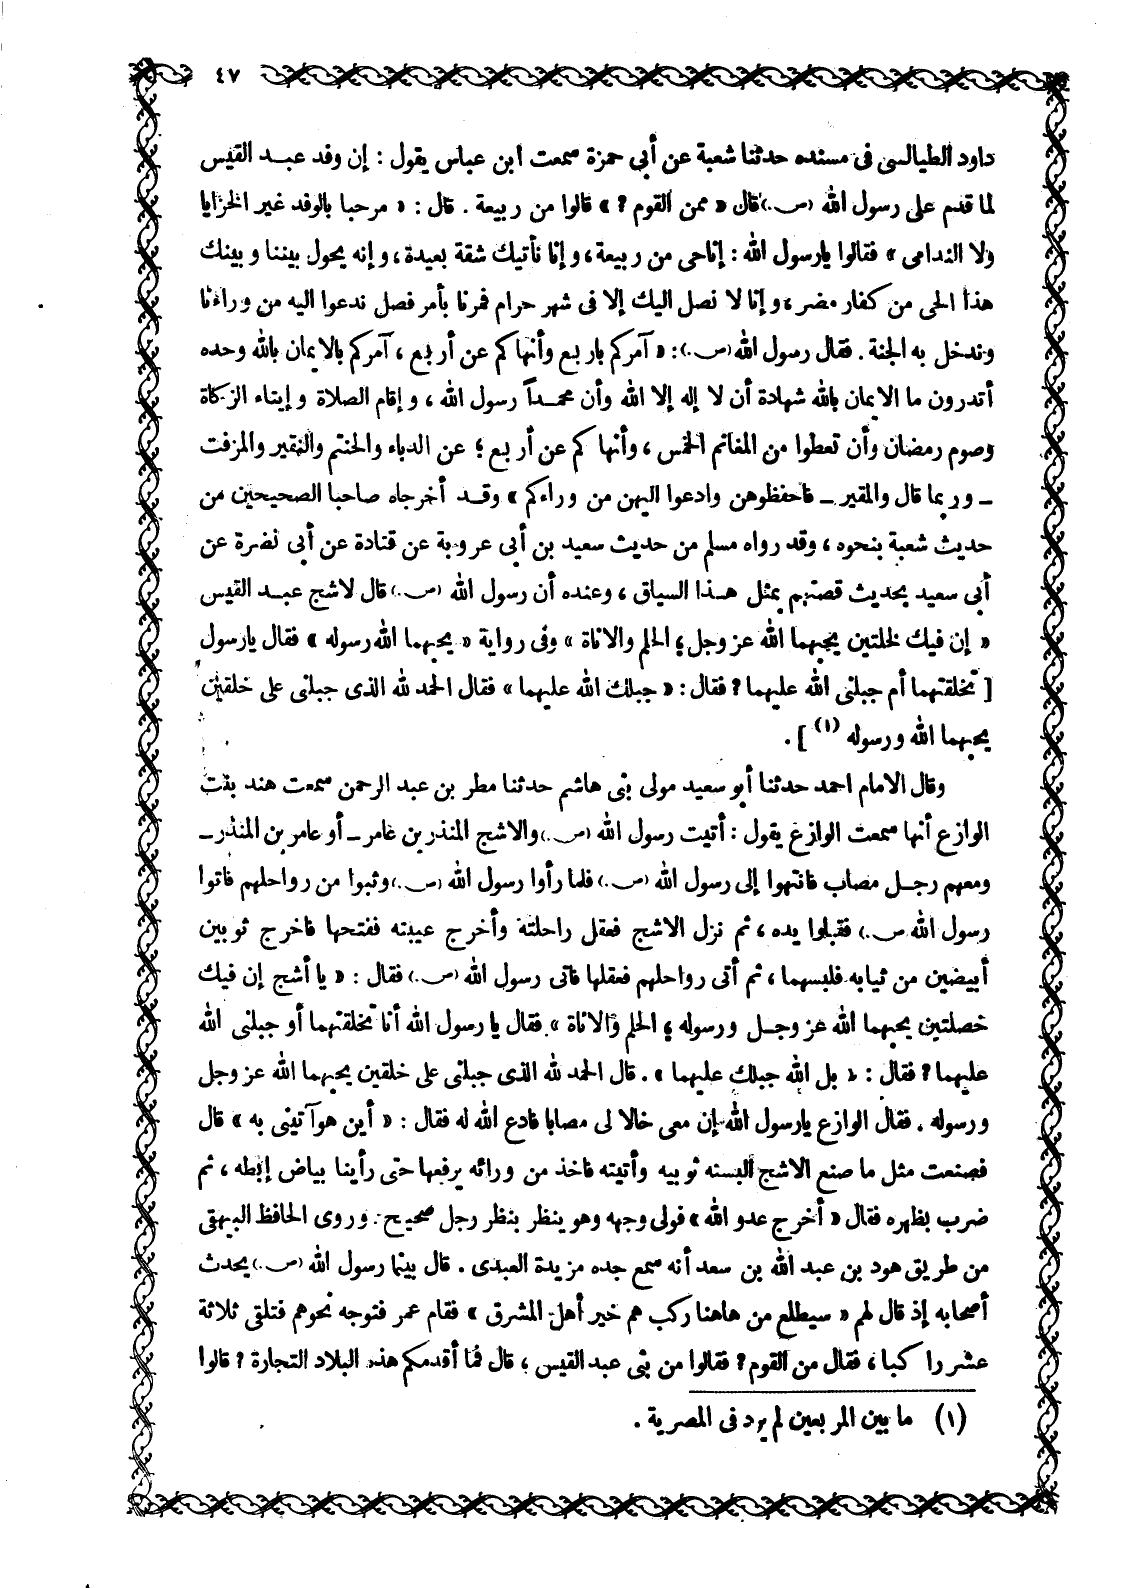 ٤٧
داود الطيالسى فى مسنده حدثنا شعبة عن أبى حمزة سمعت ابن عباس يقول : إن وفد عبد القيس
لما قدم على رسول الله (ص.) قال « ممن القوم ? » قالوا من ربيعة . قال : « مرحبا بالوفد غير الخزايا
ولا الندامى » فقالوا يارسول الله : إناحى من ربيعة ، وإنا نأتيك شقة بعيدة ، وإنه يحول بيننا وبينك
هذا الحى من كفار مضر ، وإنا لا نصل اليك إلا فى شهر حرام فمرنا بأمر فصل ندعوا اليه من وراءنا
وندخل به الجنة . فقال رسول الله (ص.) : « آمركم باربع وأنهاكم عن أربع ، آمركم بالايمان بالله وحده
أتدرون ما الايمان بالله شهادة أن لا إله إلا الله وأن محمداً رسول الله ، وإقام الصلاة وإيتاء الزكاة
وصوم رمضان وأن تعطوا من المغانم الخمس ، وأنهاكم عن أربع ؛ عن الدباء والحنتم والنقير والمزفت
ـ وربما قال والمقير ـ فاحفظوهن وادعوا اليهن من وراءكم » وقد أخرجاه صاحبا الصحيحين من
حديث شعبة بنحوه ، وقد رواه مسلم من حديث سعيد بن أبى عروبة عن قتادة عن أبى نضرة عن
أبى سعيد بحديث قصتهم بمثل هذا السياق ، وعنده أن رسول الله (ص.) قال لاشج عبد القيس
« إن فيك لخلتين يحبهما الله عز وجل ؛ الحلم والاناة » وفى رواية « يحبهما الله رسوله » فقال يارسول
[ تخلقتهما أم جبلنى الله عليهما ? فقال : « جبلك الله عليهما » فقال الحمد لله الذى جبلنى على خلقين
يحبهما الله ورسوله (١) ] .
وقال الامام احمد حدثنا أبو سعيد مولى بنى هاشم حدثنا مطر بن عبد الرحمن سمعت هند بنت
الوازع أنها سمعت الوازع يقول : أتيت رسول الله (ص.) والاشج المنذر بن عامر ـ أو عامر بن المنذر ـ
ومعهم رجل مصاب فانتهوا إلى رسول الله (ص.) فلما رأوا رسول الله (ص.) وثبوا من رواحلهم فاتوا
رسول الله ص.) فقبلوا يده ، ثم نزل الاشج فعقل راحلتة وأخرج عيبته ففتحها فاخرج ثوبين
أبيضين من ثيابه فلبسهما ، ثم أتى رواحلهم فعقلها فاتى رسول الله (ص.) فقال : « يا أشج إن فيك
خصلتين يحبهما الله عز وجل ورسوله ؛ الحلم والاناة » . فقال يا رسول الله أنا تخلقتهما أو جبلنى الله
عليهما ? فقال : « بل الله جبلك عليهما » . قال الحمد لله الذى جبلنى على خلقين يحبهما الله عز وجل
ورسوله . فقال الوازع يارسول الله إن معى خالا لى مصابا فادع الله له فقال : « أين هو آتينى به » قال
فصنعت مثل ما صنع الاشج ألبسته ثوبيه وأتيته فاخذ من ورائه يرفعها حتى رأينا بياض إبطه ، ثم
ضرب بظهره فقال « أخرج عدو الله » فولى وجهه وهو ينظر بنظر رجل صحيح . وروى الحافظ البيهقى
من طريق هود بن عبد الله بن سعد أنه سمع جده مزيدة العبدى . قال بينما رسول الله (ص.) يحدث
أصحابه إذ قال لهم « سيطلع من هاهنا ركب هم خير أهل المشرق » فقام عمر فتوجه نحوهم فتلقى ثلاثة
عشر راكبا ، فقال من القوم ? فقالوا من بنى عبد القيس ، قال فما أقدمكم هذه البلاد التجارة ? قالوا
(١) ما بين المربعين لم يرد فى المصرية .